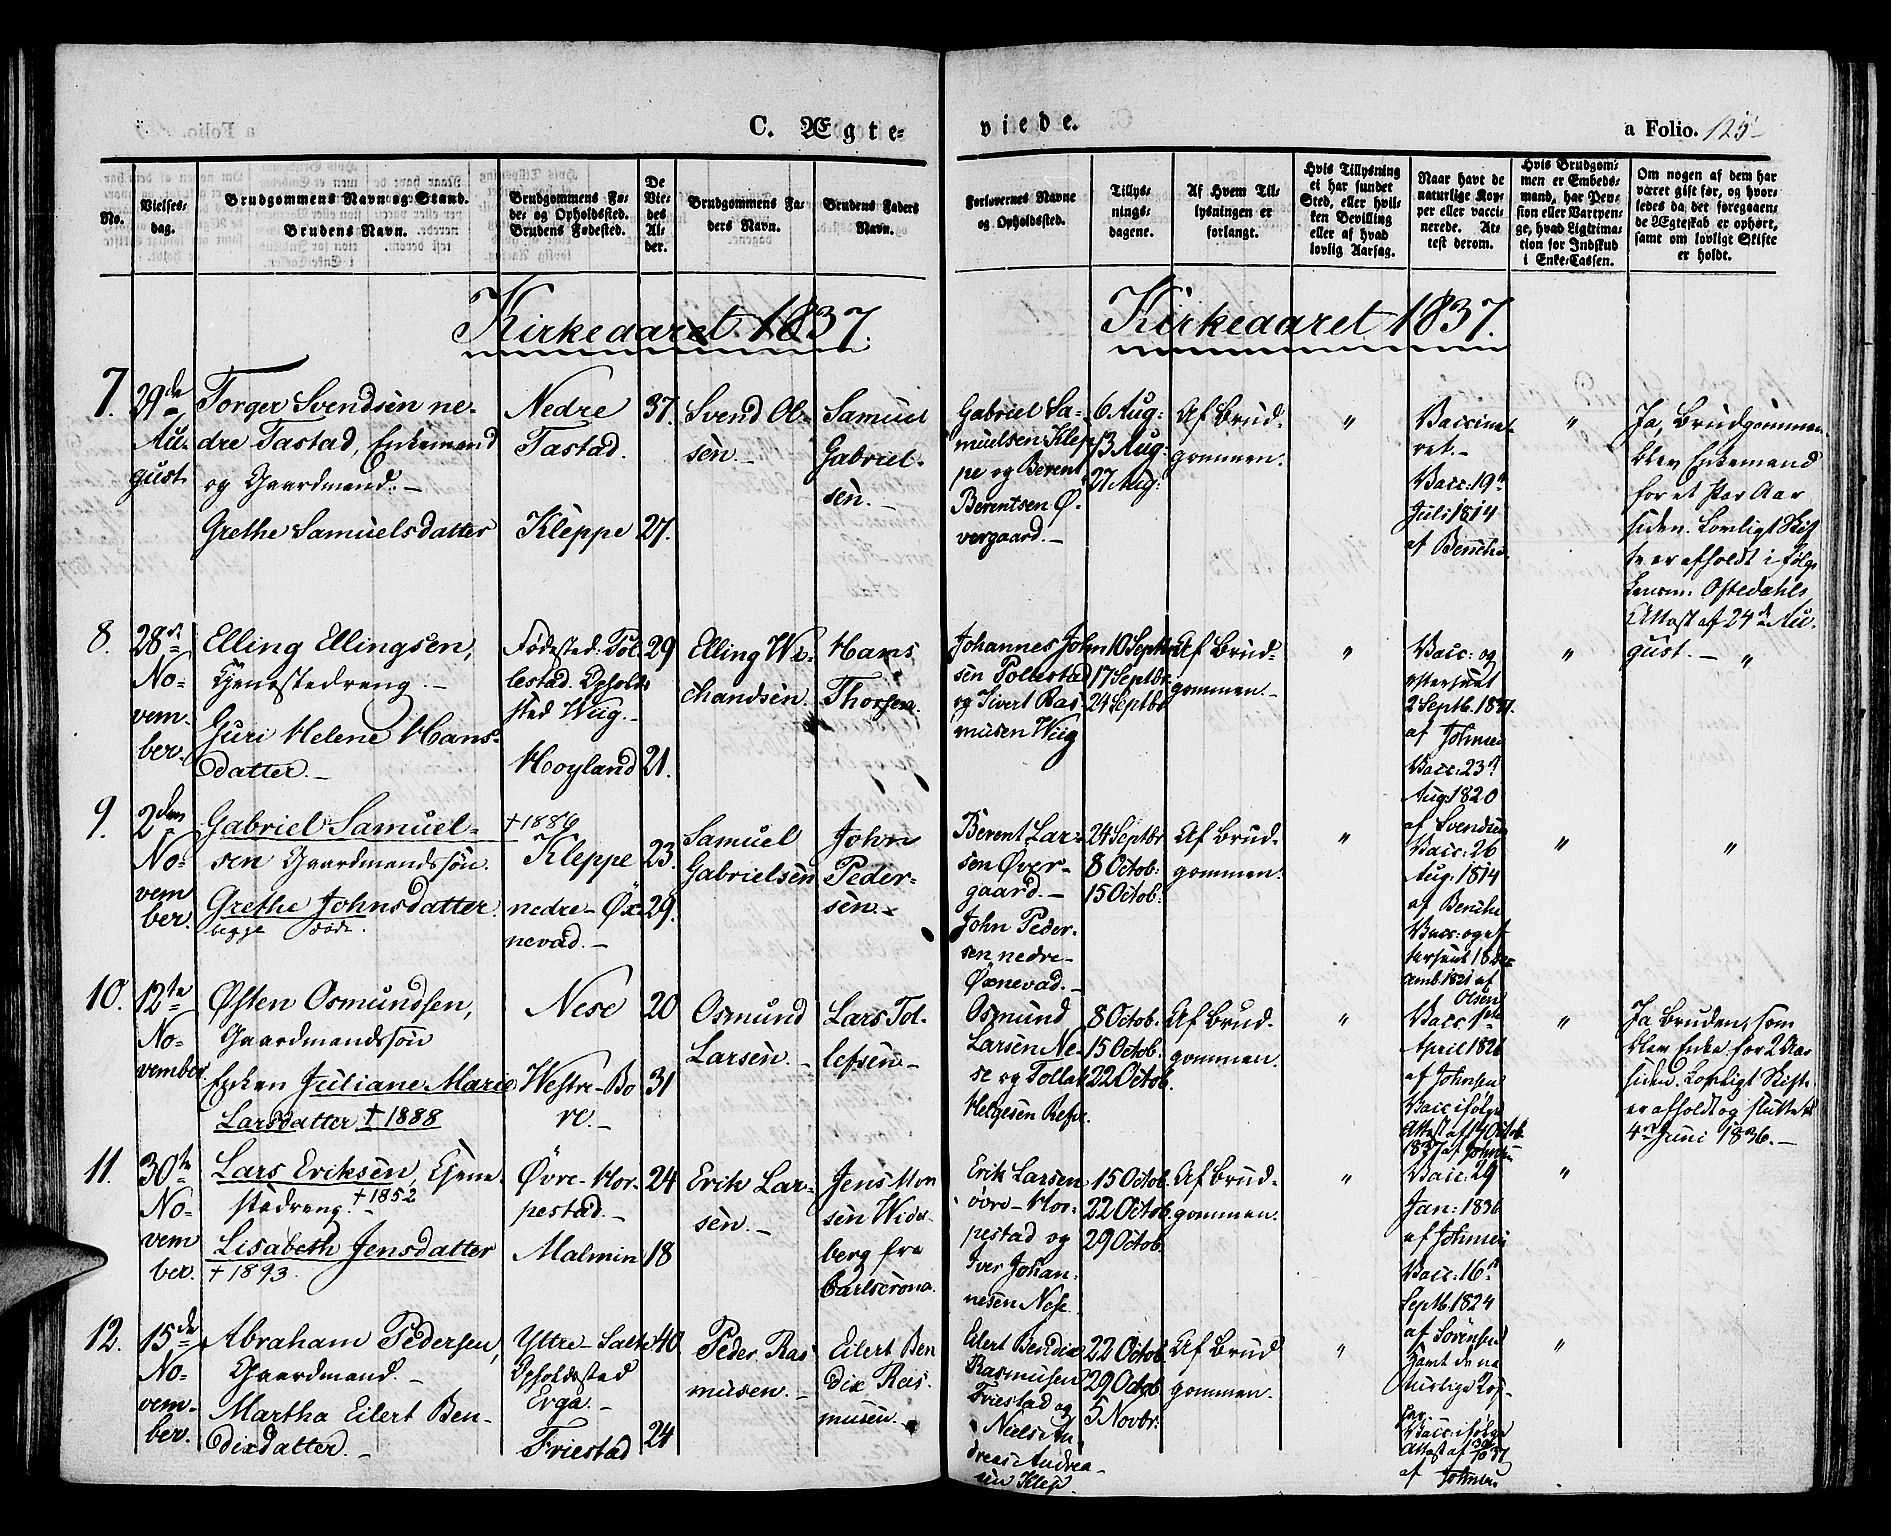 C. Ægte-
viede.
a Folio. 125
No.
Vielses-
dag.
Brudgommens Navn og Stand.
Brudens Navn.
Brudgommens Fø-
de- og Opholdssted.
Brudens Fødested.
De
Vie-
des
Al-
der.
Brudgommens Fa-
ders Navn.
Brudens Faders
Navn.
Forlovernes Navne
og Opholdssted.
Tillys-
nings-
dagene.
Af Hvem Til-
lysningen er
forlangt.
Hvis Tillysning
ei har fundet
Sted, eller hvil-
ken Bevilling
eller af hvad
lovlig Aarsag.
Naar havt de
naturlige Kop-
per eller vacci-
nerede. At-
test derom.
Hvis Brudgom-
men er Embeds-
mand, har Pen-
sion eller Vartpen-
ge, hvad Legitima-
tion for Indskud
i Enke-Cassen.
Om nogen af dem har
været gift før, og hvor-
ledes da det foregaaen-
de Ægteskab er ophørt,
samt om lovligt Skifte
er holdt.
Kirkeaaret 1837.
Kirkeaaret 1837.
7.
29de
Au-
gust.
Torger Svendsen ne-
dre Tastad, Enkemand
og Gaardmand. –
Grethe Samuelsdatter
Nedre
Tastad.
Kleppe
37.
27.
Svend Ol-
sen. –
Samuel
Gabriel-
sen. –
Gabriel Sa-
muelsen Klep-
pe og Berent
Berentsen Ø-
vergaard. –
6 Aug:
13 Aug:
27 Aug:
Af Brud-
gommen.
"
Vaccine-
ret. –
Vacc: 19
Juli 1814
af
"
Ja, Brudgommen
blev Enkemand
for et Par Aar
siden. Lovligt Skif-
te er afholdt i følge
Lensm: Oftedahls
Attest af 24de Au-
gust. – "
8.
28
No-
vem-
ber.
Elling Ellingsen,
Tjenestedreng. –
Guri Helene Hans-
datter. –
Fødested: Tol-
lestad. Opholds-
sted Wiig. –
Hoyland
29
21.
Elling Wi-
chandsen.
Hans
Thorsen.
Johannes John-
sen Pollestad
og Sivert Ras-
musen Wiig
10 Septbr
17 Septbr.
24 Septbr
Af Brud-
gommen. –
"
Vacc: og
efterseet
2 Septb. 1837.
af Johnsen
Vacc: 23
Aug 1820
af Svendsen
"
9.
2den
No-
vem
ber.
Gabriel Samuel-
sen Gaardmandssøn.
Grethe Johnsdatter.
begge døde.
+ 1886
Kleppe
nedre – Øx-
nevad. –
23.
29.
Samuel
Gabrielsen
John
Peder-
sen. –
Berent Lar-
sen Øver-
gaard. –
John Peder-
sen nedre –
Øxnevad. –
24 Septbr
8 Octob:
15 Octob:
Af Brud-
gommen.
"
Vacc: 26
Aug: 1814
af
Vacc: og ef-
terseet
1821 af
Olsen
"
"
10.
12te
No-
vember
Østen Osmundsen,
Gaardmandssøn
Enken Juliane Marie
Larsdatter + 1888
Nese
Westre – Bo
re. –
20
31
Osmund
Larsen. –
Lars Tol-
lefsen –
Osmund
Larsen Ne-
se og Tollak
Helgesen Refs.
8 Octob.
15 Octob.
22 Octob.
Af Brud-
gommen.
"
Vacc: 1ste
April 1826
af Johnsen
Vacc: ifølge
Attest af 7 Octob.
1837 af Johnsen
"
Ja Bruden, som
blev Enke for 2 Aar
siden. Lovligt Skifte
er afholdt og sluttet
4 Juni 1836. –
11.
30te
No-
vem
ber.
Lars Eriksen, Tjene-
stedreng. + 1852
Lisabeth Jensdatter
+ 1893.
Øvre – Hor-
pestad. –
Malmin
24
18
Erik Lar-
sen. –
Jens Mon
sen Wider-
berg fra
Carlscrona.
Erik Larsen
øvre – Hor-
pestad og
Iver Johan-
nesen Nese
15 Octob.
22 Octob.
29 Octob.
Af Brud-
gommen.
"
Vacc: 29
Jan: 1836
af Johnsen
Vacc: 16
Septb. 1824
af Sörensen
"
12.
15de
No-
vem-
ber.
Abraham Pedersen,
Gaardmand. –
Martha Eilert Ben-
dixdatter. –
Yttre – Salte
Opholdssted
Erga. –
Friestad
40.
24
Peder Ras
musen. –
Eilert Ben
dix Ras-
musen. –
Eilert Bendix
Rasmusen
Friestad og
Niels An-
dreas Andrea-
sen Klep.
22 Octob.
29 Octob
5 Novbr.
Af Brud
gommen.
"
Havt de na
turlige Kop-
per.
Vacc: ifølge
Attest af
af Johnsen
"